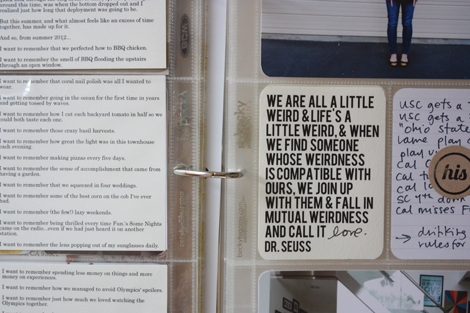 around this time, was when the bottom dropped out and I
realized just how long that deployment was going to be.
But this summer, and what almost feels like an excess of time
together, has made up for it.
And so, from summer 2012...
I want to remember that we perfected how to BBQ chicken.
I want to remember the smell of BBQ flooding the upstairs
through an open window.
I want to remember that coral nail polish was all I wanted to
wear.
I want to remember going in the ocean for the first time in years
and getting tossed by waves.
I want to remember how I cut each backyard tomato in half so we
could both taste each one.
I want to remember those crazy basil harvests.
I want to remember how great the light was in this townhouse
each evening.
I want to remember making pizzas every five days.
I want to remember the sense of accomplishment that came from
having a garden.
I want to remember that we squeezed in four weddings.
I want to remember some of the best corn on the cob I've ever
had.
I want to remember (the few!) lazy weekends.
I want to remember being thrilled every time Fun.'s Some Nights
came on the radio...even if we had just heard it on another
station.
I want to remember the lens popping out of my sunglasses daily
I want to remember spending less money on things and more
money on experiences.
I want to remember how we managed to avoid Olympics' spoilers.
I want to remember just how much we loved watching the
Olympics together.
WE ARE ALL A LITTLE
WEIRD & LIFE'S A
LITTLE WEIRD, & WHEN
WE FIND SOMEONE
WHOSE WEIRDNESS
IS COMPATIBLE WITH
OURS, WE JOIN UP
WITH THEM & FALL IN
MUTUAL WEIRDNESS
AND CALL IT love.
DR. SEUSS
USC gets a
USC gets a
"Ohio State
same play
play
Cal
Cal
Cal
SC
Cal misses F
his
→ drinking
rules for